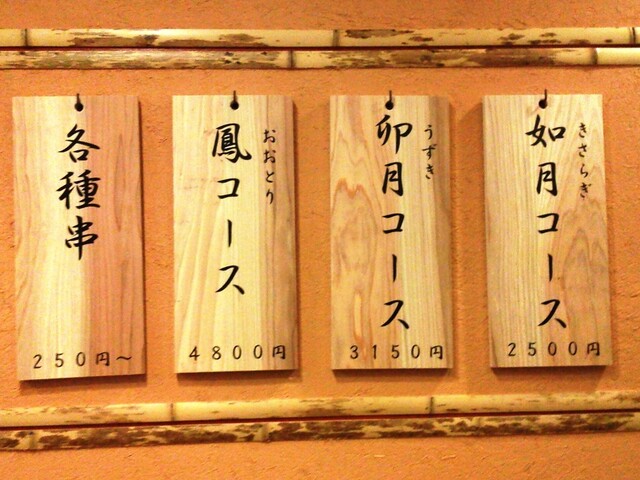 きさらぎ
如月コース
2500円
うずき
卯月コース
3150円
おおとり
鳳コース
4800円
各種串
250円～